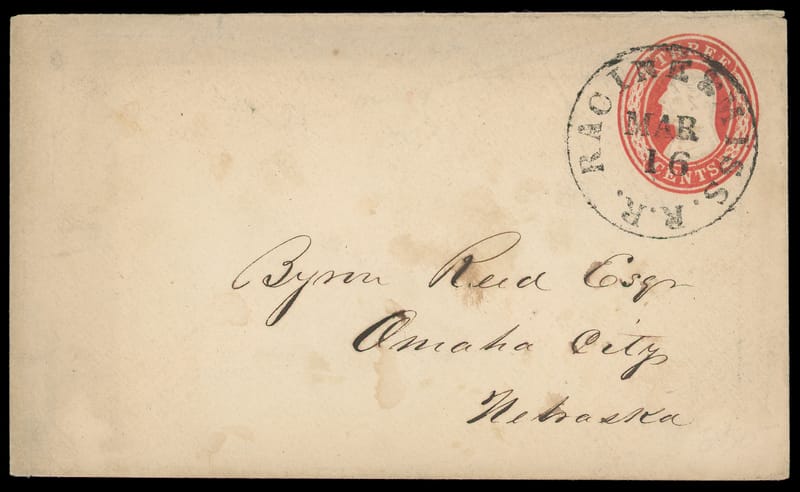 THREE
CENTS
RACINE & MISS. R.R.
MAR
16
Byron Reed Esqr
Omaha City
Nebraska